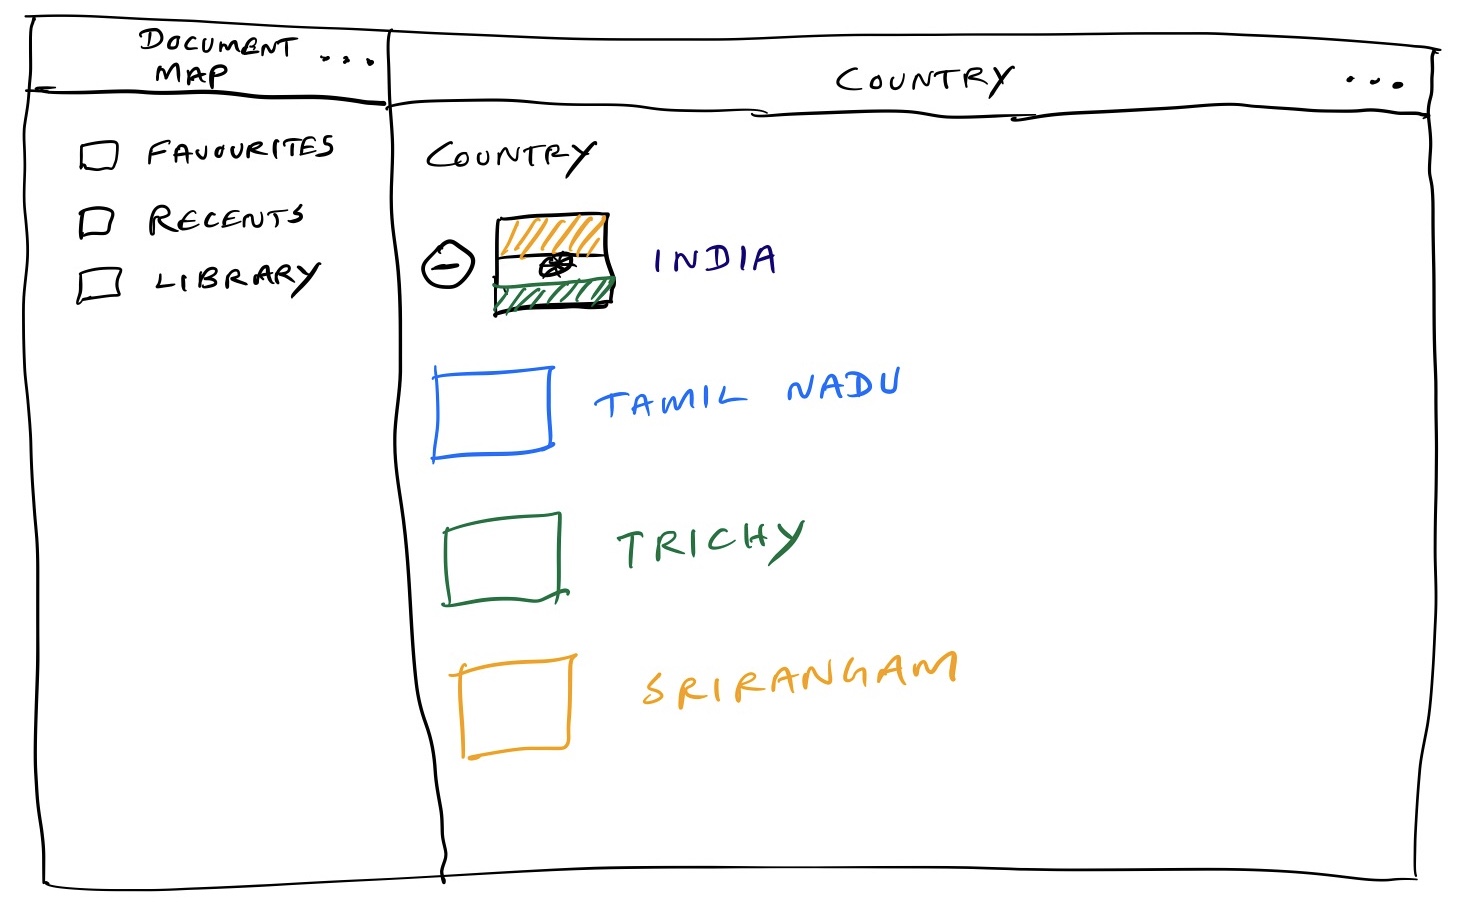 DOCUMENT
MAP
...
COUNTRY
...
FAVOURITES
RECENTS
LIBRARY
COUNTRY
INDIA
TAMIL NADU
TRICHY
SRIRANGAM